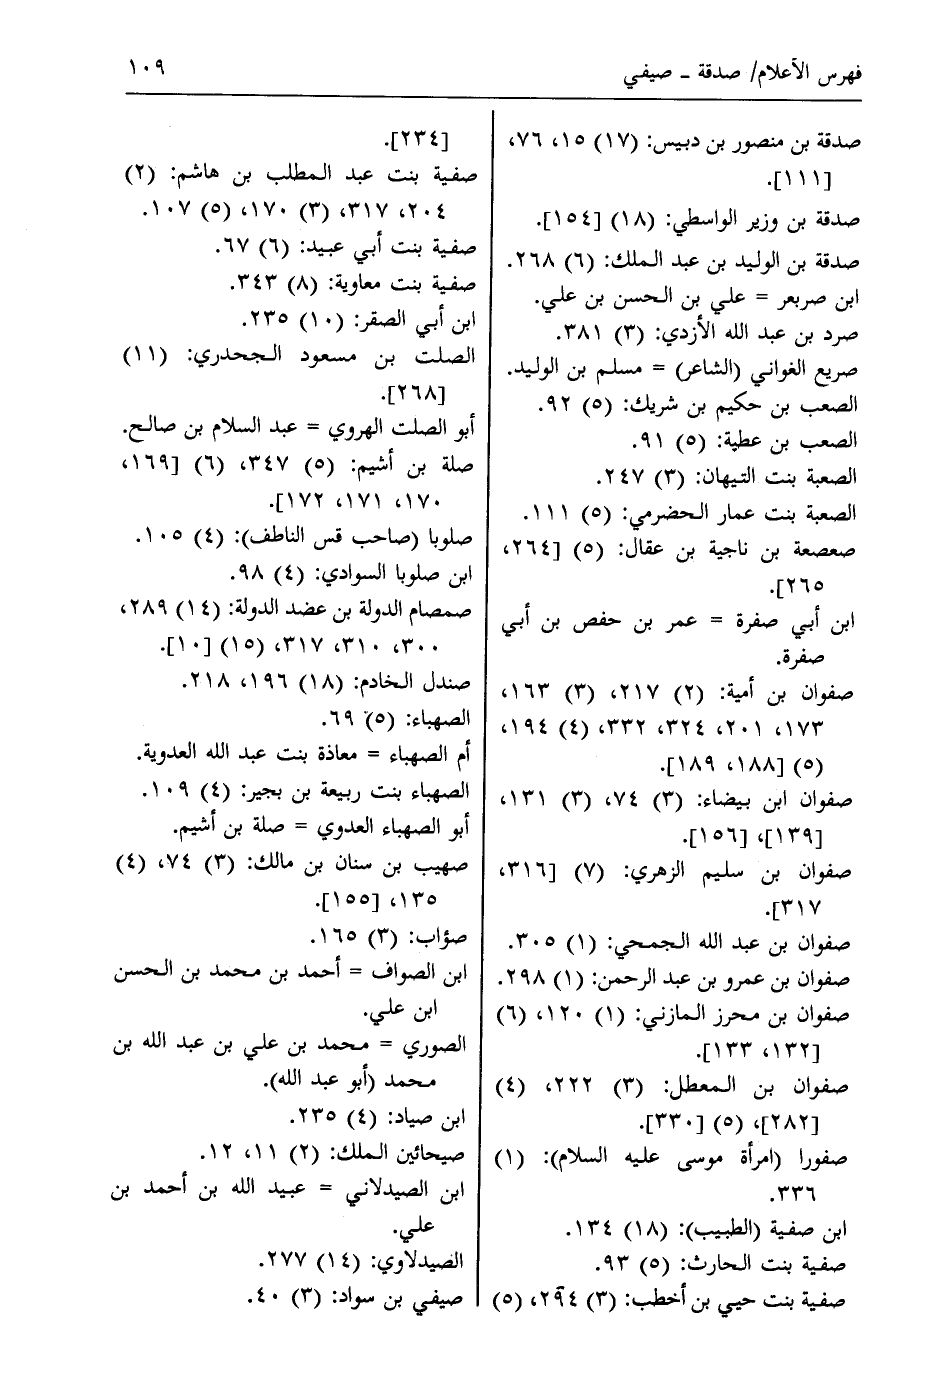 فهرس الأعلام/ صدقة ـ صيفي
١٠٩
صدقة بن منصور بن دبيس: (١٧) ١٥، ٧٦،
[١١١].
صدقة بن وزير الواسطي: (١٨) [١٥٤].
صدقة بن الوليد بن عبد الملك: (٦) ٢٦٨.
ابن صربعر = علي بن الحسن بن علي.
صرد بن عبد الله الأزدي: (٣) ٣٨١.
صريع الغواني (الشاعر) = مسلم بن الوليد.
الصعب بن حكيم بن شريك: (٥) ٩٢.
الصعب بن عطية: (٥) ٩١.
الصعبة بنت التيهان: (٣) ٢٤٧.
الصعبة بنت عمار الحضرمي: (٥) ١١١.
صعصعة بن ناجية بن عقال: (٥) [٢٦٤،
٢٦٥].
ابن أبي صفرة = عمر بن حفص بن أبي
صفرة.
صفوان بن أمية: (٢) ٢١٧، (٣) ١٦٣،
١٧٣، ٢٠١، ٣٢٤، ٣٣٢، (٤) ١٩٤،
(٥) [١٨٨، ١٨٩].
صفوان ابن بيضاء: (٣) ٧٤، (٣) ١٣١،
[١٣٩]، [١٥٦].
صفوان بن سليم الزهري: (٧) [٣١٦،
٣١٧].
صفوان بن عبد الله الجمحي: (١) ٣٠٥.
صفوان بن عمرو بن عبد الرحمن: (١) ٢٩٨.
صفوان بن محرز المازني: (١) ١٢٠، (٦)
[١٣٢، ١٣٣].
صفوان بن المعطل: (٣) ٢٢٢، (٤)
[٢٨٢]، (٥) [٣٣٠].
صفورا (امرأة موسى عليه السلام): (١)
٣٣٦.
ابن صفية (الطبيب): (١٨) ١٣٤.
صفية بنت الحارث: (٥) ٩٣.
صفية بنت حيي بن أخطب: (٣) ٢٩٤، (٥)
[٢٣٤].
صفية بنت عبد المطلب بن هاشم: (٢)
٢٠٤، ٣١٧، (٣) ١٧٠، (٥) ١٠٧.
صفية بنت أبي عبيد: (٦) ٦٧.
صفية بنت معاوية: (٨) ٣٤٣.
ابن أبي الصقر: (١٠) ٢٣٥.
الصلت بن مسعود الجحدري: (١١)
[٢٦٨].
أبو الصلت الهروي = عبد السلام بن صالح.
صلة بن أشيم: (٥) ٣٤٧، (٦) [١٦٩،
١٧٠، ١٧١، ١٧٢].
صلوبا (صاحب قس الناطف): (٤) ١٠٥.
ابن صلوبا السوادي: (٤) ٩٨.
صمصام الدولة بن عضد الدولة: (١٤) ٢٨٩،
٣٠٠، ٣١٠، ٣١٧، (١٥) [١٠].
صندل الخادم: (١٨) ١٩٦، ٢١٨.
الصهباء: (٥) ٦٩.
أم الصهباء = معاذة بنت عبد الله العدوية.
الصهباء بنت ربيعة بن بجير: (٤) ١٠٩.
أبو الصهباء العدوي = صلة بن أشيم.
صهيب بن سنان بن مالك: (٣) ٧٤، (٤)
١٣٥، [١٥٥].
صؤاب: (٣) ١٦٥.
ابن الصواف = أحمد بن محمد بن الحسن
ابن علي.
الصوري = محمد بن علي بن عبد الله بن
محمد (أبو عبد الله).
ابن صياد: (٤) ٢٣٥.
صيحائين الملك: (٢) ١١، ١٢.
ابن الصيدلاني = عبيد الله بن أحمد بن
علي.
الصيدلاوي: (١٤) ٢٧٧.
صيفي بن سواد: (٣) ٤٠.